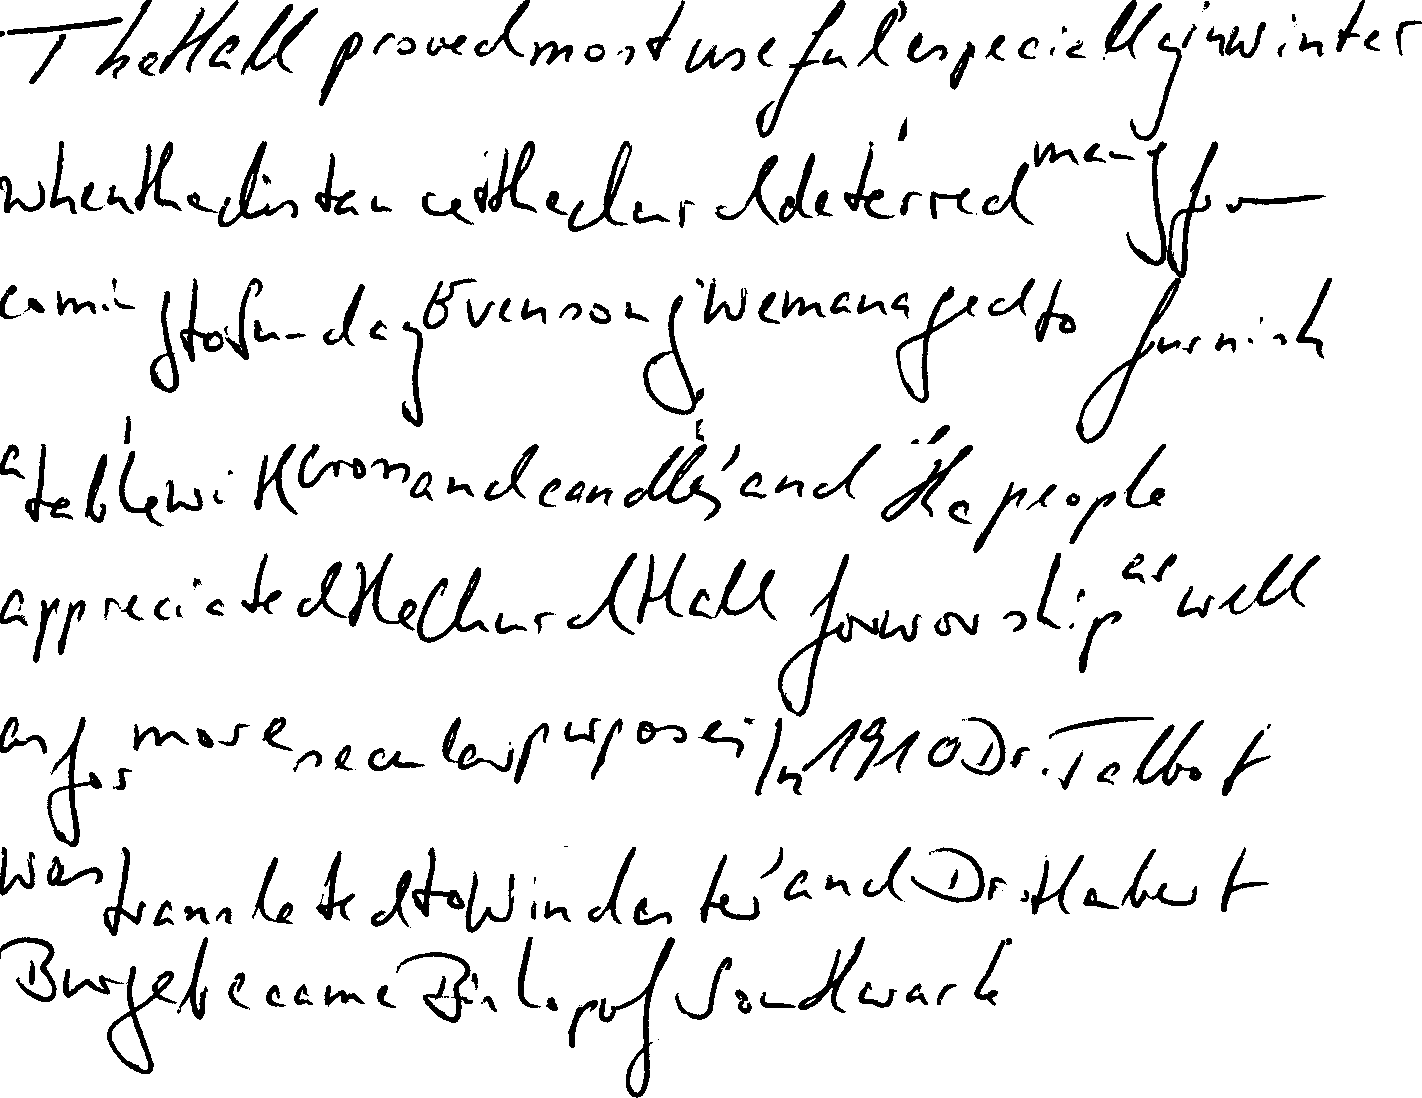 The Hall proved most useful especially in winter
when the distance to the church deterred many from
coming to Sunday Evensong. We managed to furnish
a table with cross and candles, and the people
appreciated the Church Hall for worship as well
as for more secular purposes. In 1910 Dr. Talbot
was translated to Winchester, and Dr. Hubert
Burge became Bishop of Southwark